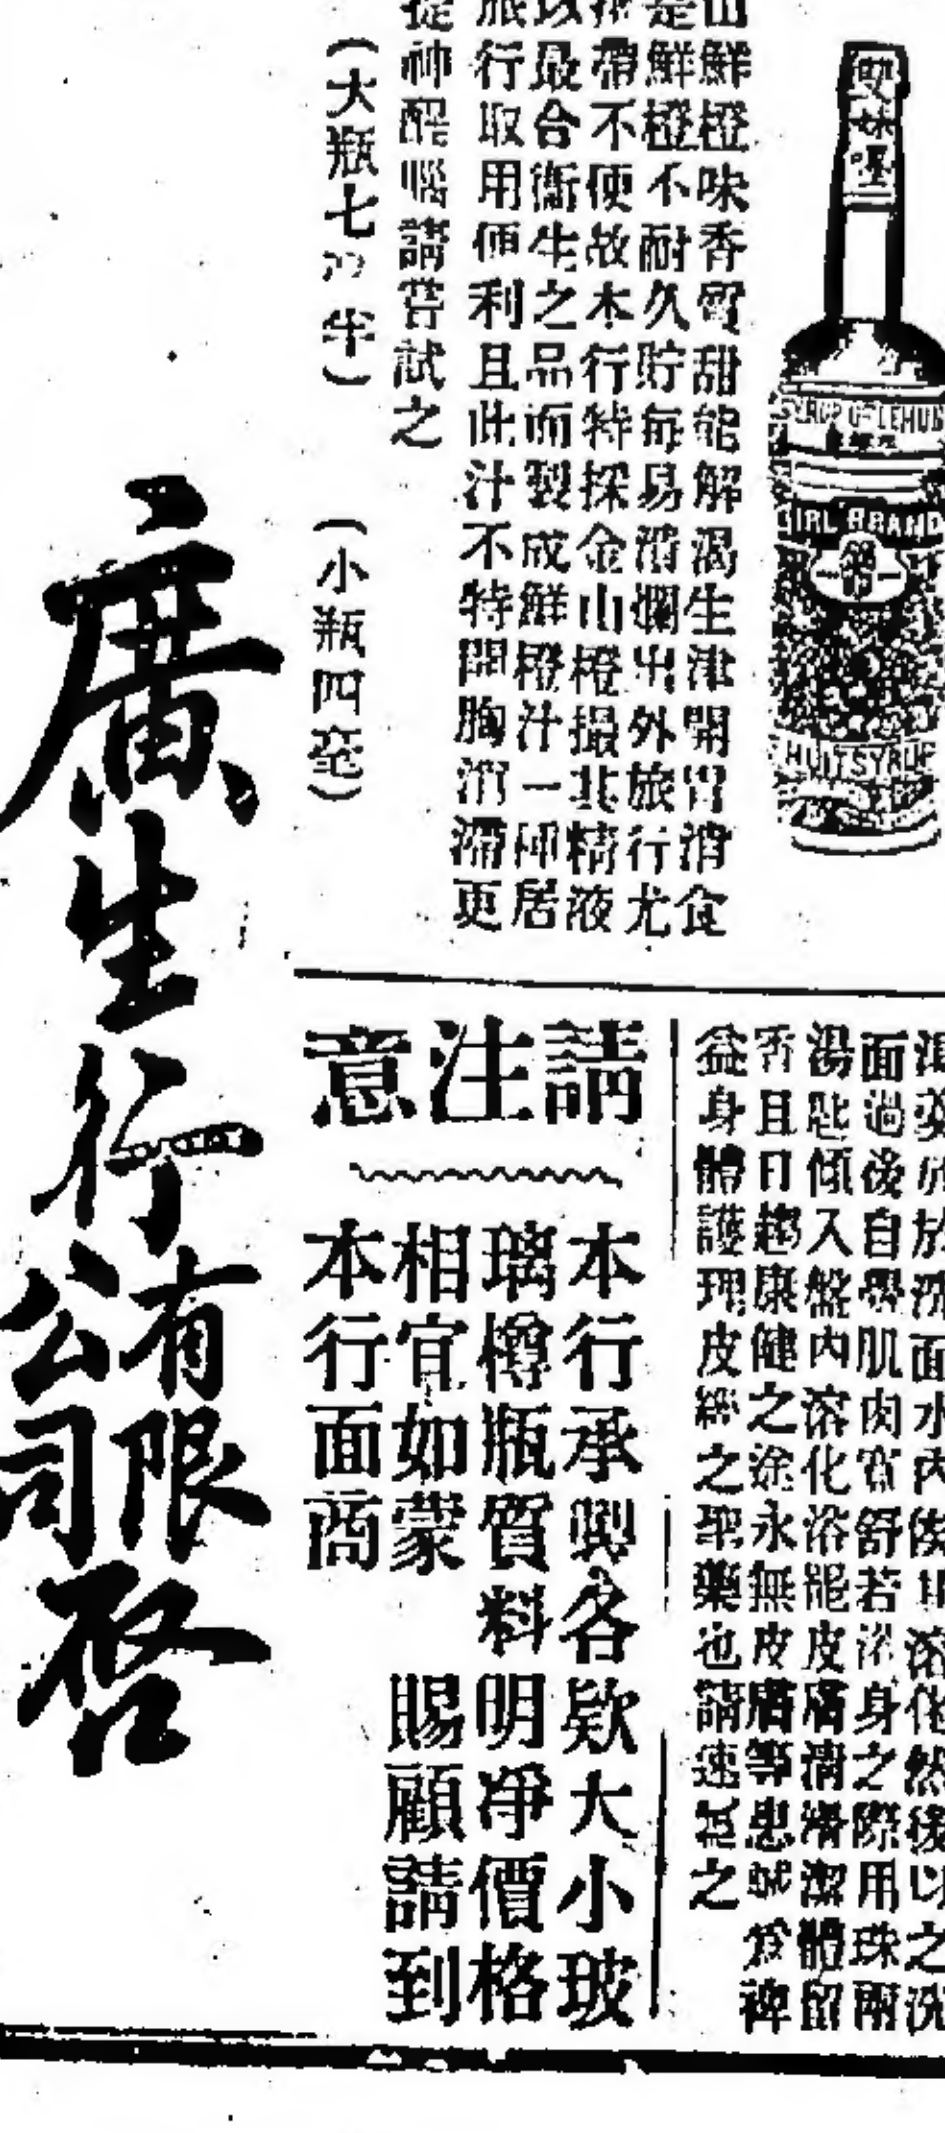 雙妹嘜
SYROP OF LEMON
GIRL BRAND
FRUIT SYRUP
山鮮橙味香質甜能解渴生津開胃消食
是鮮橙不耐久貯每易消爛出外旅行尤
攜帶不便故本行特採金山橙撮其精液
以最合衞生之品而製成鮮橙汁一種居
旅行取用便利且此汁不特開胸消滯更
提神醒腦請嘗試之
（大瓶七 半）
（小瓶四毫）
放洗面水內 溶化然後以之洗
面過後自覺肌肉寬舒若浴身之際用珠兩
湯匙傾入盤內溶化浴罷皮膚清潔體留
香且日趨康健之途永無皮膚等患誠為裨
益身體護理皮 之聖藥也請速試之
請注意
本行承製各欵大小玻
璃樽瓶質料明凈價格
相宜如蒙 賜顧請到
本行面商
廣生行有限公司啓